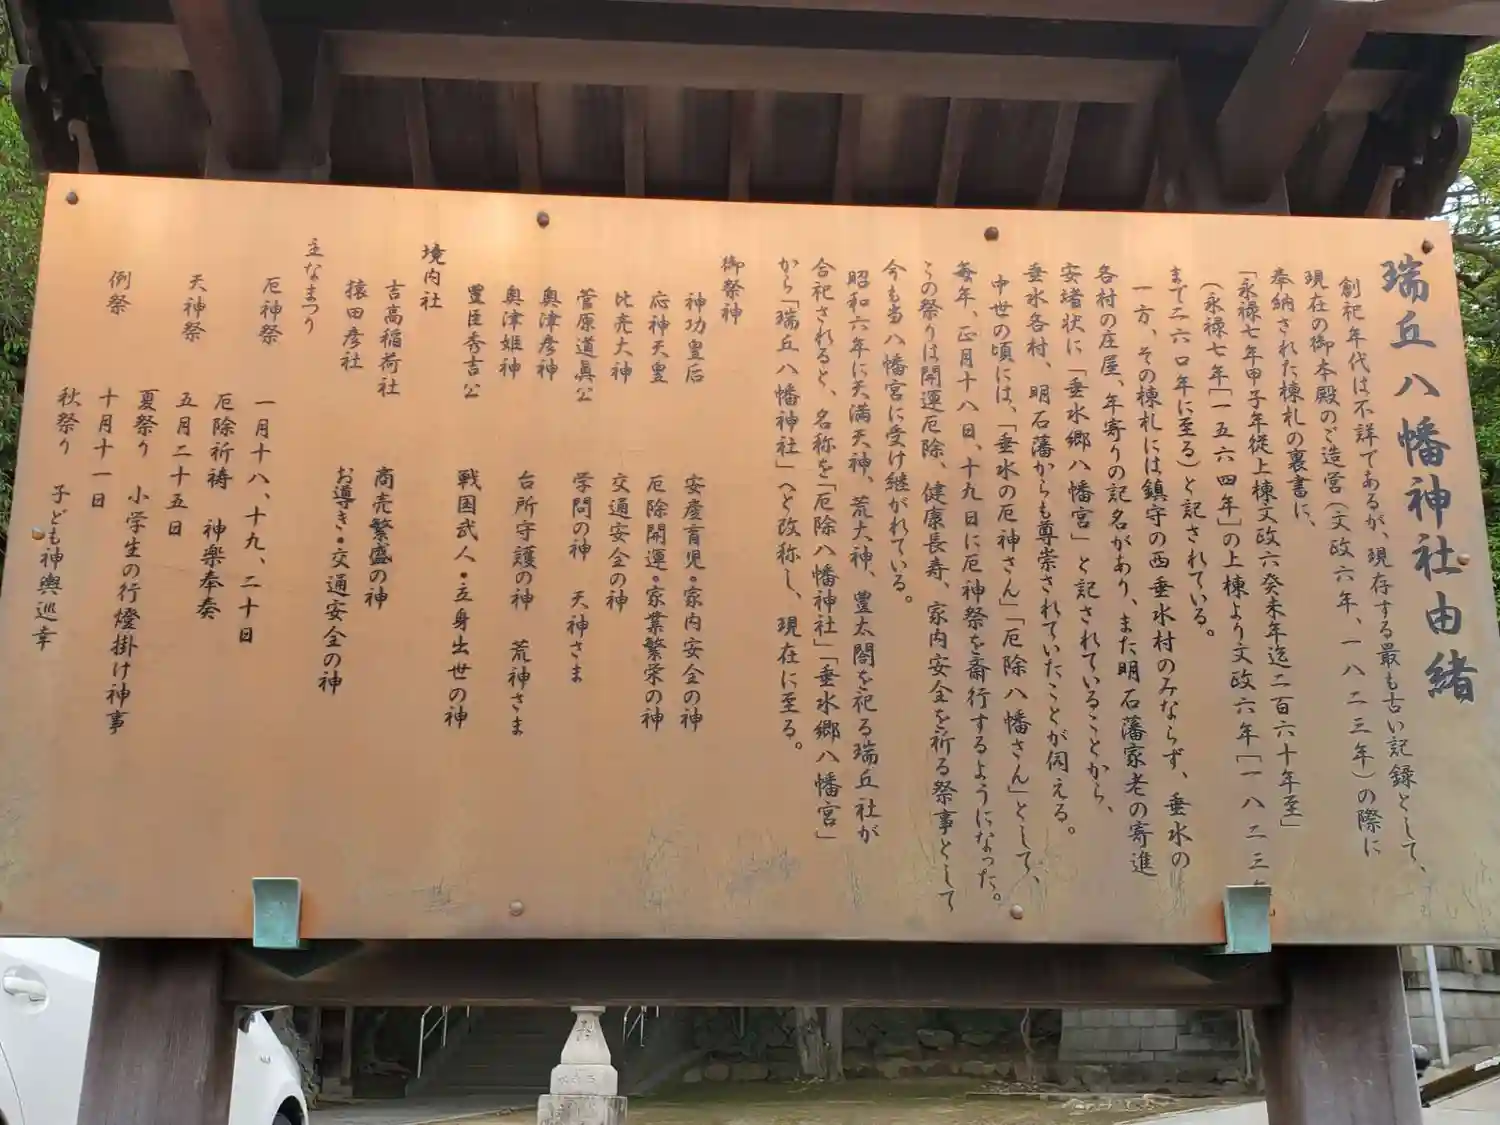 瑞丘八幡神社由緒
創祀年代は不詳であるが、現存する最も古い記録として、
現在の御本殿のご造営(文政六年、一八二三年)の際に
奉納された棟札の裏書に、
「永禄七年甲子年従上棟文政六癸未年迄二百六十年至」
(永禄七年[一五六四年]の上棟より文政六年[一八二三年
まで二六〇年に至る)と記されている。
一方、その棟札には鎮守の西垂水村のみならず、垂水の
各村の庄屋、年寄りの記名があり、また明石藩家老の寄進
安堵状に「垂水郷八幡宮」と記されていることから、
垂水各村、明石藩からも尊崇されていたことが伺える。
中世の頃には、「垂水の厄神さん」「厄除八幡さん」として、
毎年、正月十八日、十九日に厄神祭を斎行するようになった。
この祭りは開運厄除、健康長寿、家内安全を祈る祭事として
今も当八幡宮に受け継がれている。
昭和六年に天満天神、荒大神、豊太閤を祀る瑞丘社が
合祀されると、名称を「厄除八幡神社」「垂水郷八幡宮」
から「瑞丘八幡神社」へと改称し、現在に至る。
御祭神
神功皇后 安産育児・家内安全の神
応神天皇 厄除開運・家業繁栄の神
比売大神 交通安全の神
菅原道真公 学問の神 天神さま
奥津彦神
奥津姫神 台所守護の神 荒神さま
豊臣秀吉公 戦国武人・立身出世の神
境内社
吉高稲荷社 商売繁盛の神
猿田彦社 お導き・交通安全の神
主なまつり
厄神祭 一月十八、十九、二十日
厄除祈祷 神楽奉奏
天神祭 五月二十五日
夏祭り 小学生の行燈掛け神事
例祭 十月十一日
秋祭り 子ども神輿巡幸